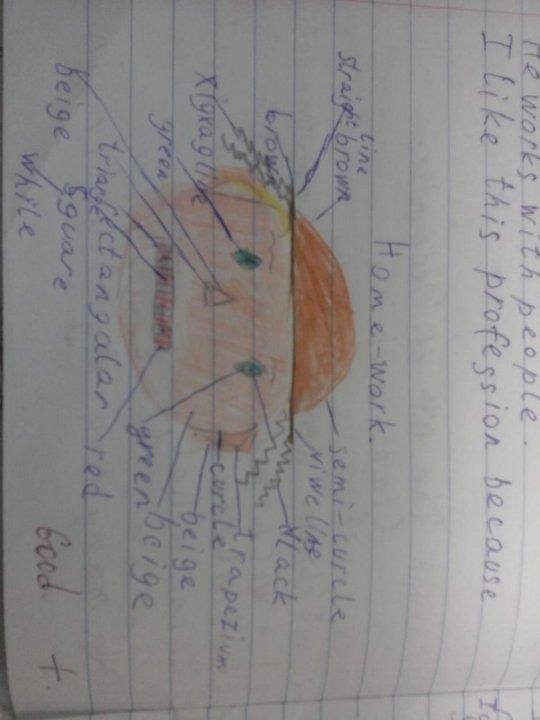 He works with people.
I like this profession because
Home-work.
straight line
brown
brown
xigxagline
green
triangle
beige
square
white
rectangular
red
semi-curcle
black
trapezium
curcle
beige
beige
green
Good. +